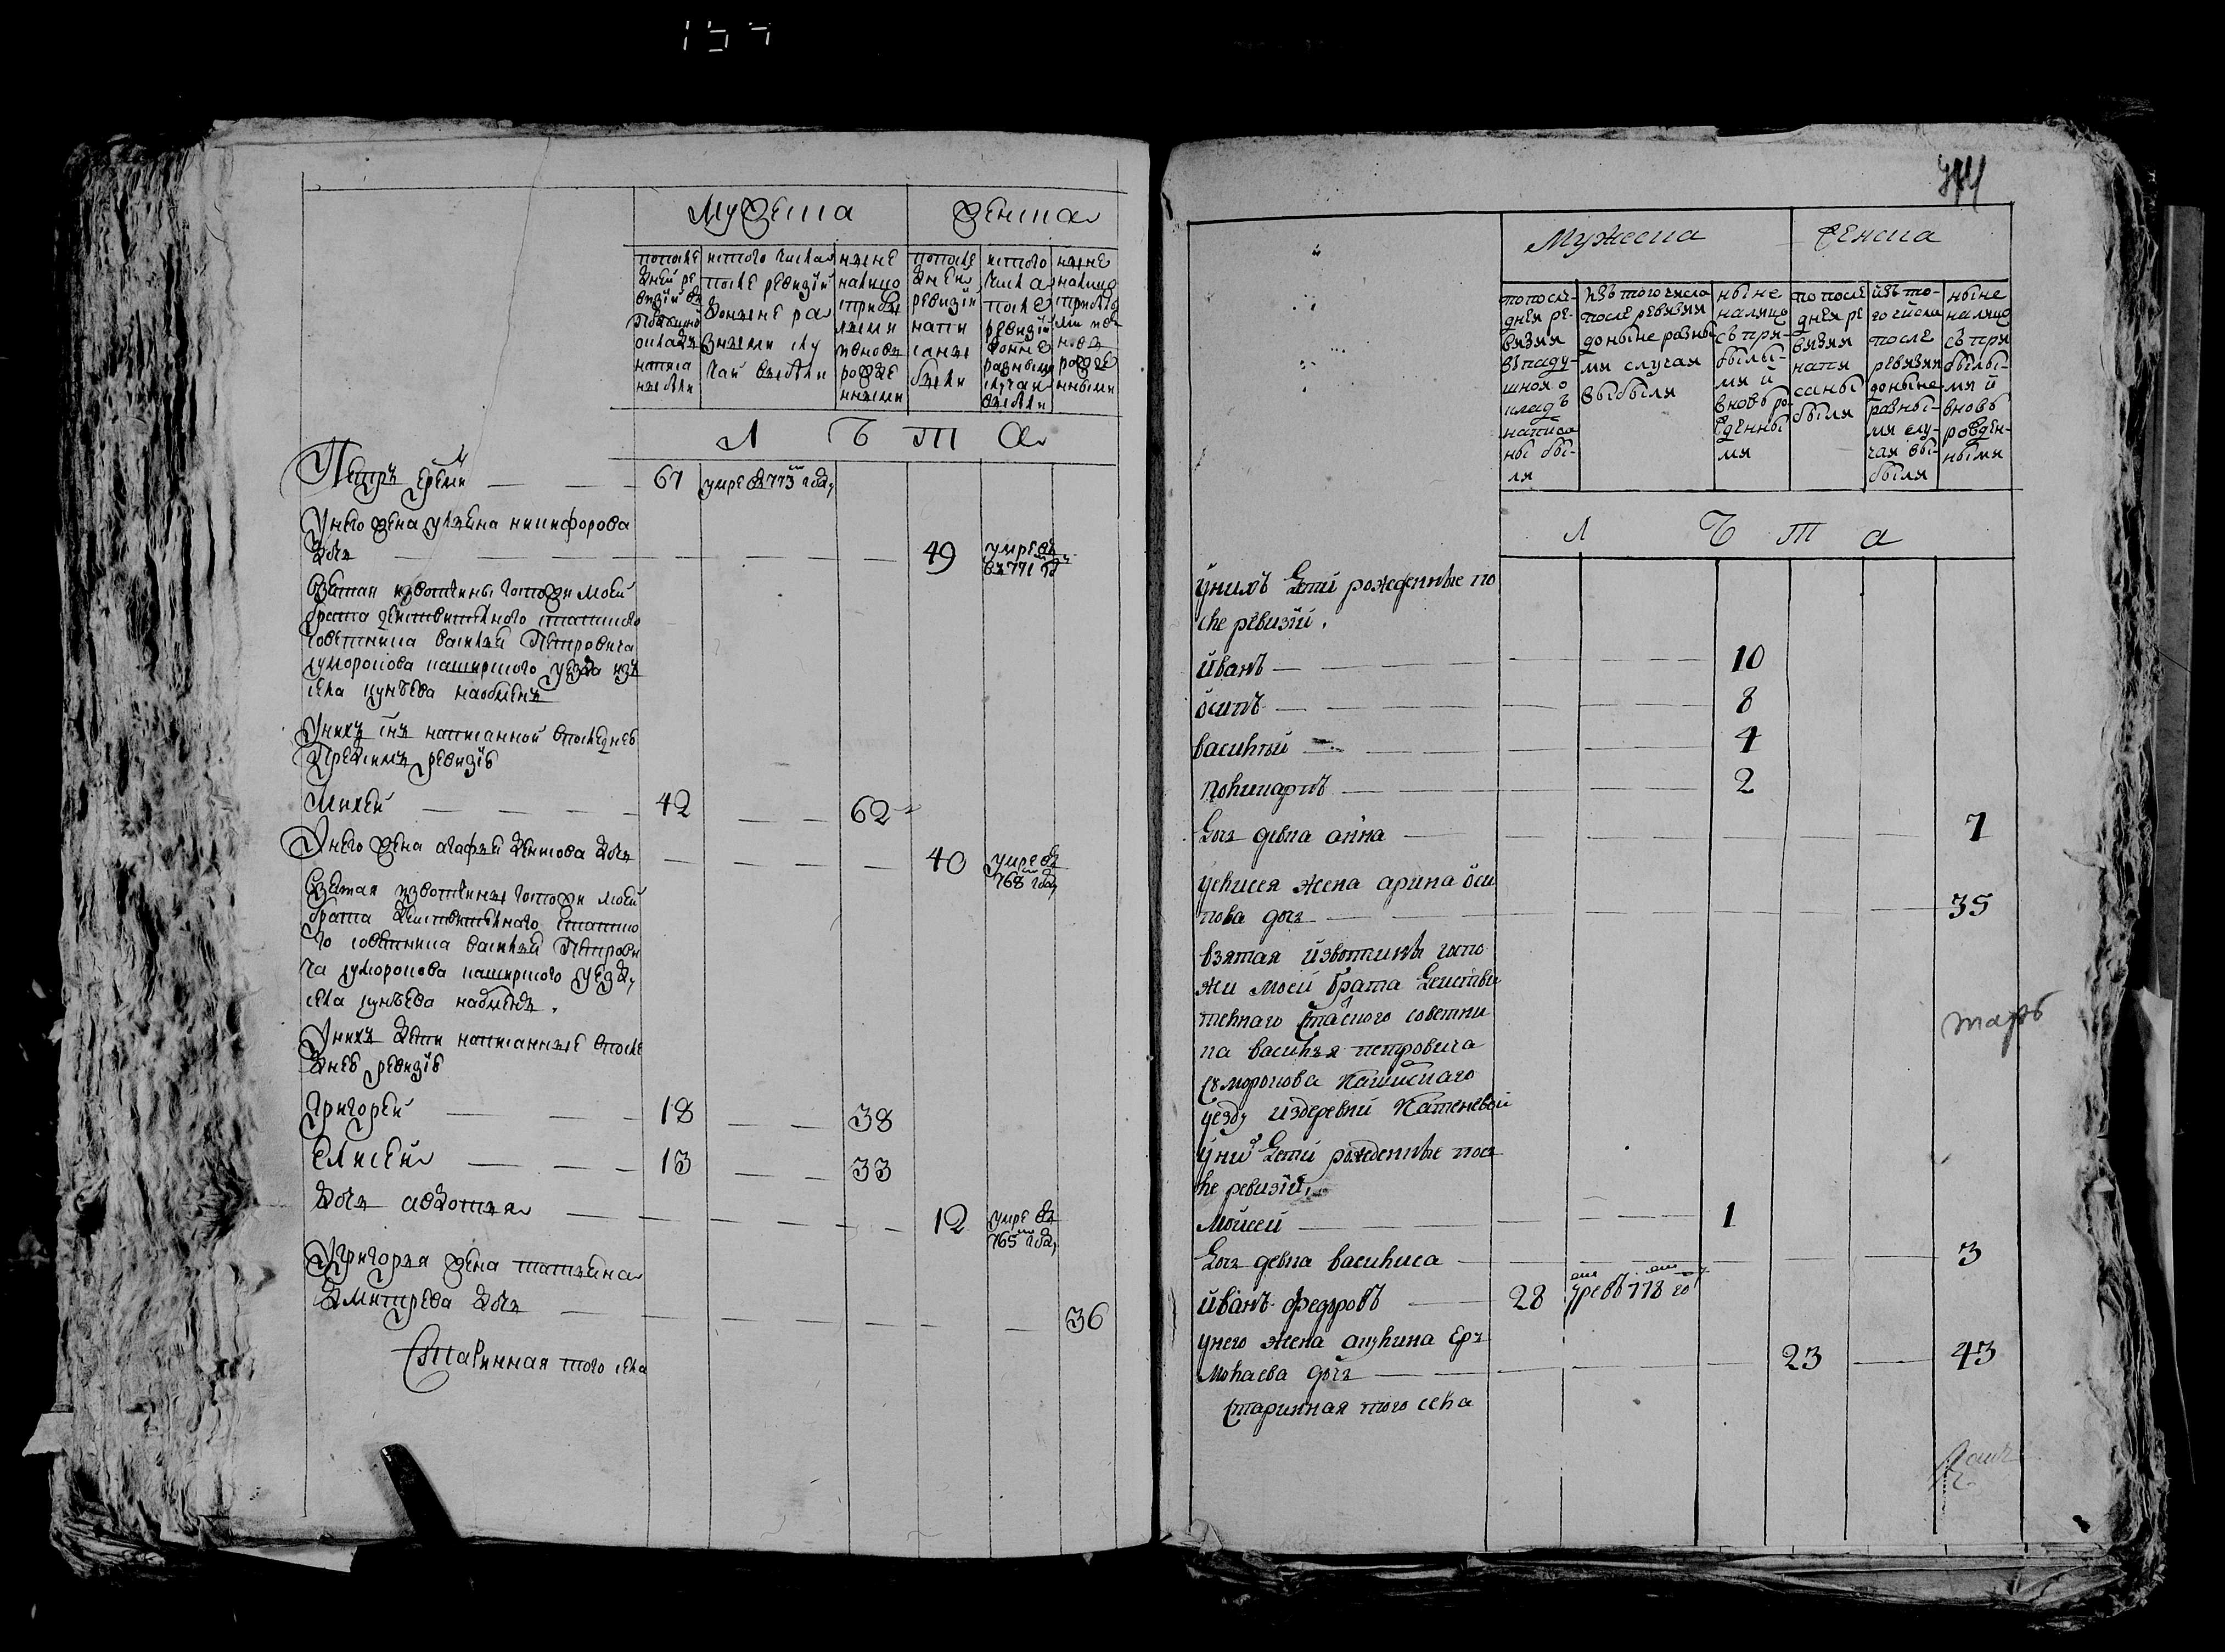 Мужеска
женска
попосле
дней ре
визий въ
подушной
окладъ
написа
ны были
истого числа
после ревизии
доныне ра
зными слу
чаи выбыли
ныне
налицо
сприбы
лыми
ивновь
рожде
нными
попосле
дней
ревизии
напи
саны
были
истого
числа
после
ревизии
доныне
разными
случаи
выбыли
ныне
налицо
сприбы
ми ив
новь
рожде
нными
Л Ѣ Т а
Петръ Ереми 61 умре в 773м году
Унего жена ульена никифорова
дочь 49 умре въ
въ 771м го
взятая извотчины госпожи моей
брата действителного статского
советника василья Петровича
сумарокова каширского уезда изъ
села кунѣева наобменъ
Унихъ снъ написанной впоследнеѣ
пред симъ ревизіѣ
Михей 42 62
Унего жена агафья дентова дочь 40 умре въ
768м году
Взятая извотчины госпожи моей
брата действителного статско
го советника василья Петрови
ча сумарокова каширского уезду
села кунѣева наобменъ.
Унихъ дети написанные впосле
днеѣ ревизіѣ
Григорей 18 38
Елисей 13 33
дочь авдотья 12 умре въ
765м году
Угригорья жена татьяна
дмитрева дочь 36
Старинная того села
Мужеска
женска
по после-
дняя ре-
визия
въ паду-
шной о
кладъ
написа
ны бы-
ли
изъ того числа
после ревизии
до ныне разны-
ми случаи
выбыли
ныне
налицо
съ при-
былы-
ми и
вновь ро-
жденны
ми
по после
дняя ре
визия
напи
саны
были
изъ то-
го числа
после
ревизии
доныне
разны-
ми слу-
чаи вы-
были
ныне
налицо
съ при
былы-
ми и
вновь
рожден-
ными
Л Ѣ т а
унихъ дети рожденные по
сле ревизіи.
иванъ 10
осипъ 8
василей 4
поликарпъ 2
дочь девка анна 7
уелисея жена арина оси
пова дочь 35
взятая извотчины госпо
жи моей брата действи
телнаго статского советни
ка василья петровича
сумарокова каширскаго
уезду издеревни Катеневой
уних дети рожденные посъ
ле ревизіи,
Моисей 1
дочь девка василиса 3
иванъ федоровъ 28 умре въ 778м году
унего жена акулина ер
молаева дочь 23 43
Старинная того села